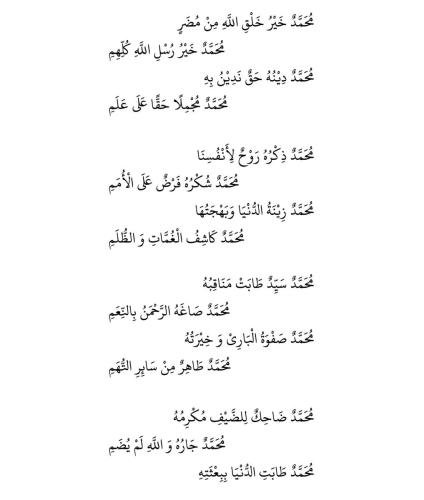 مُحَمَّدٌ خَيْرُ خَلْقِ اللَّهِ مِنْ مُضَرٍ
مُحَمَّدٌ خَيْرُ رُسْلِ اللَّهِ كُلِّهِمِ
مُحَمَّدٌ دِيْنُهُ حَقٌّ نَدِيْنُ بِهِ
مُحَمَّدٌ مُجْمِلًا حَقًّا عَلَى عَلَمِ
مُحَمَّدٌ ذِكْرُهُ رَوْحٌ لِأَنْفُسِنَا
مُحَمَّدٌ شُكْرُهُ فَرْضٌ عَلَى الْأُمَمِ
مُحَمَّدٌ زِيْنَةُ الدُّنْيَا وَبَهْجَتُهَا
مُحَمَّدٌ كَاشِفُ الْغُمَّاتِ وَ الظُّلَمِ
مُحَمَّدٌ سَيِّدٌ طَابَتْ مَنَاقِبُهُ
مُحَمَّدٌ صَاغَهُ الرَّحْمٰنُ بِالنِّعَمِ
مُحَمَّدٌ صَفْوَةُ الْبَارِئْ وَ خِيْرَتُهُ
مُحَمَّدٌ طَاهِرٌ مِنْ سَايِرِ التُّهَمِ
مُحَمَّدٌ ضَاحِكٌ لِلضَّيْفِ مُكْرِمُهُ
مُحَمَّدٌ جَارُهُ وَ اللَّهِ لَمْ يُضَمِ
مُحَمَّدٌ طَابَتِ الدُّنْيَا بِبِعْثَتِهِ